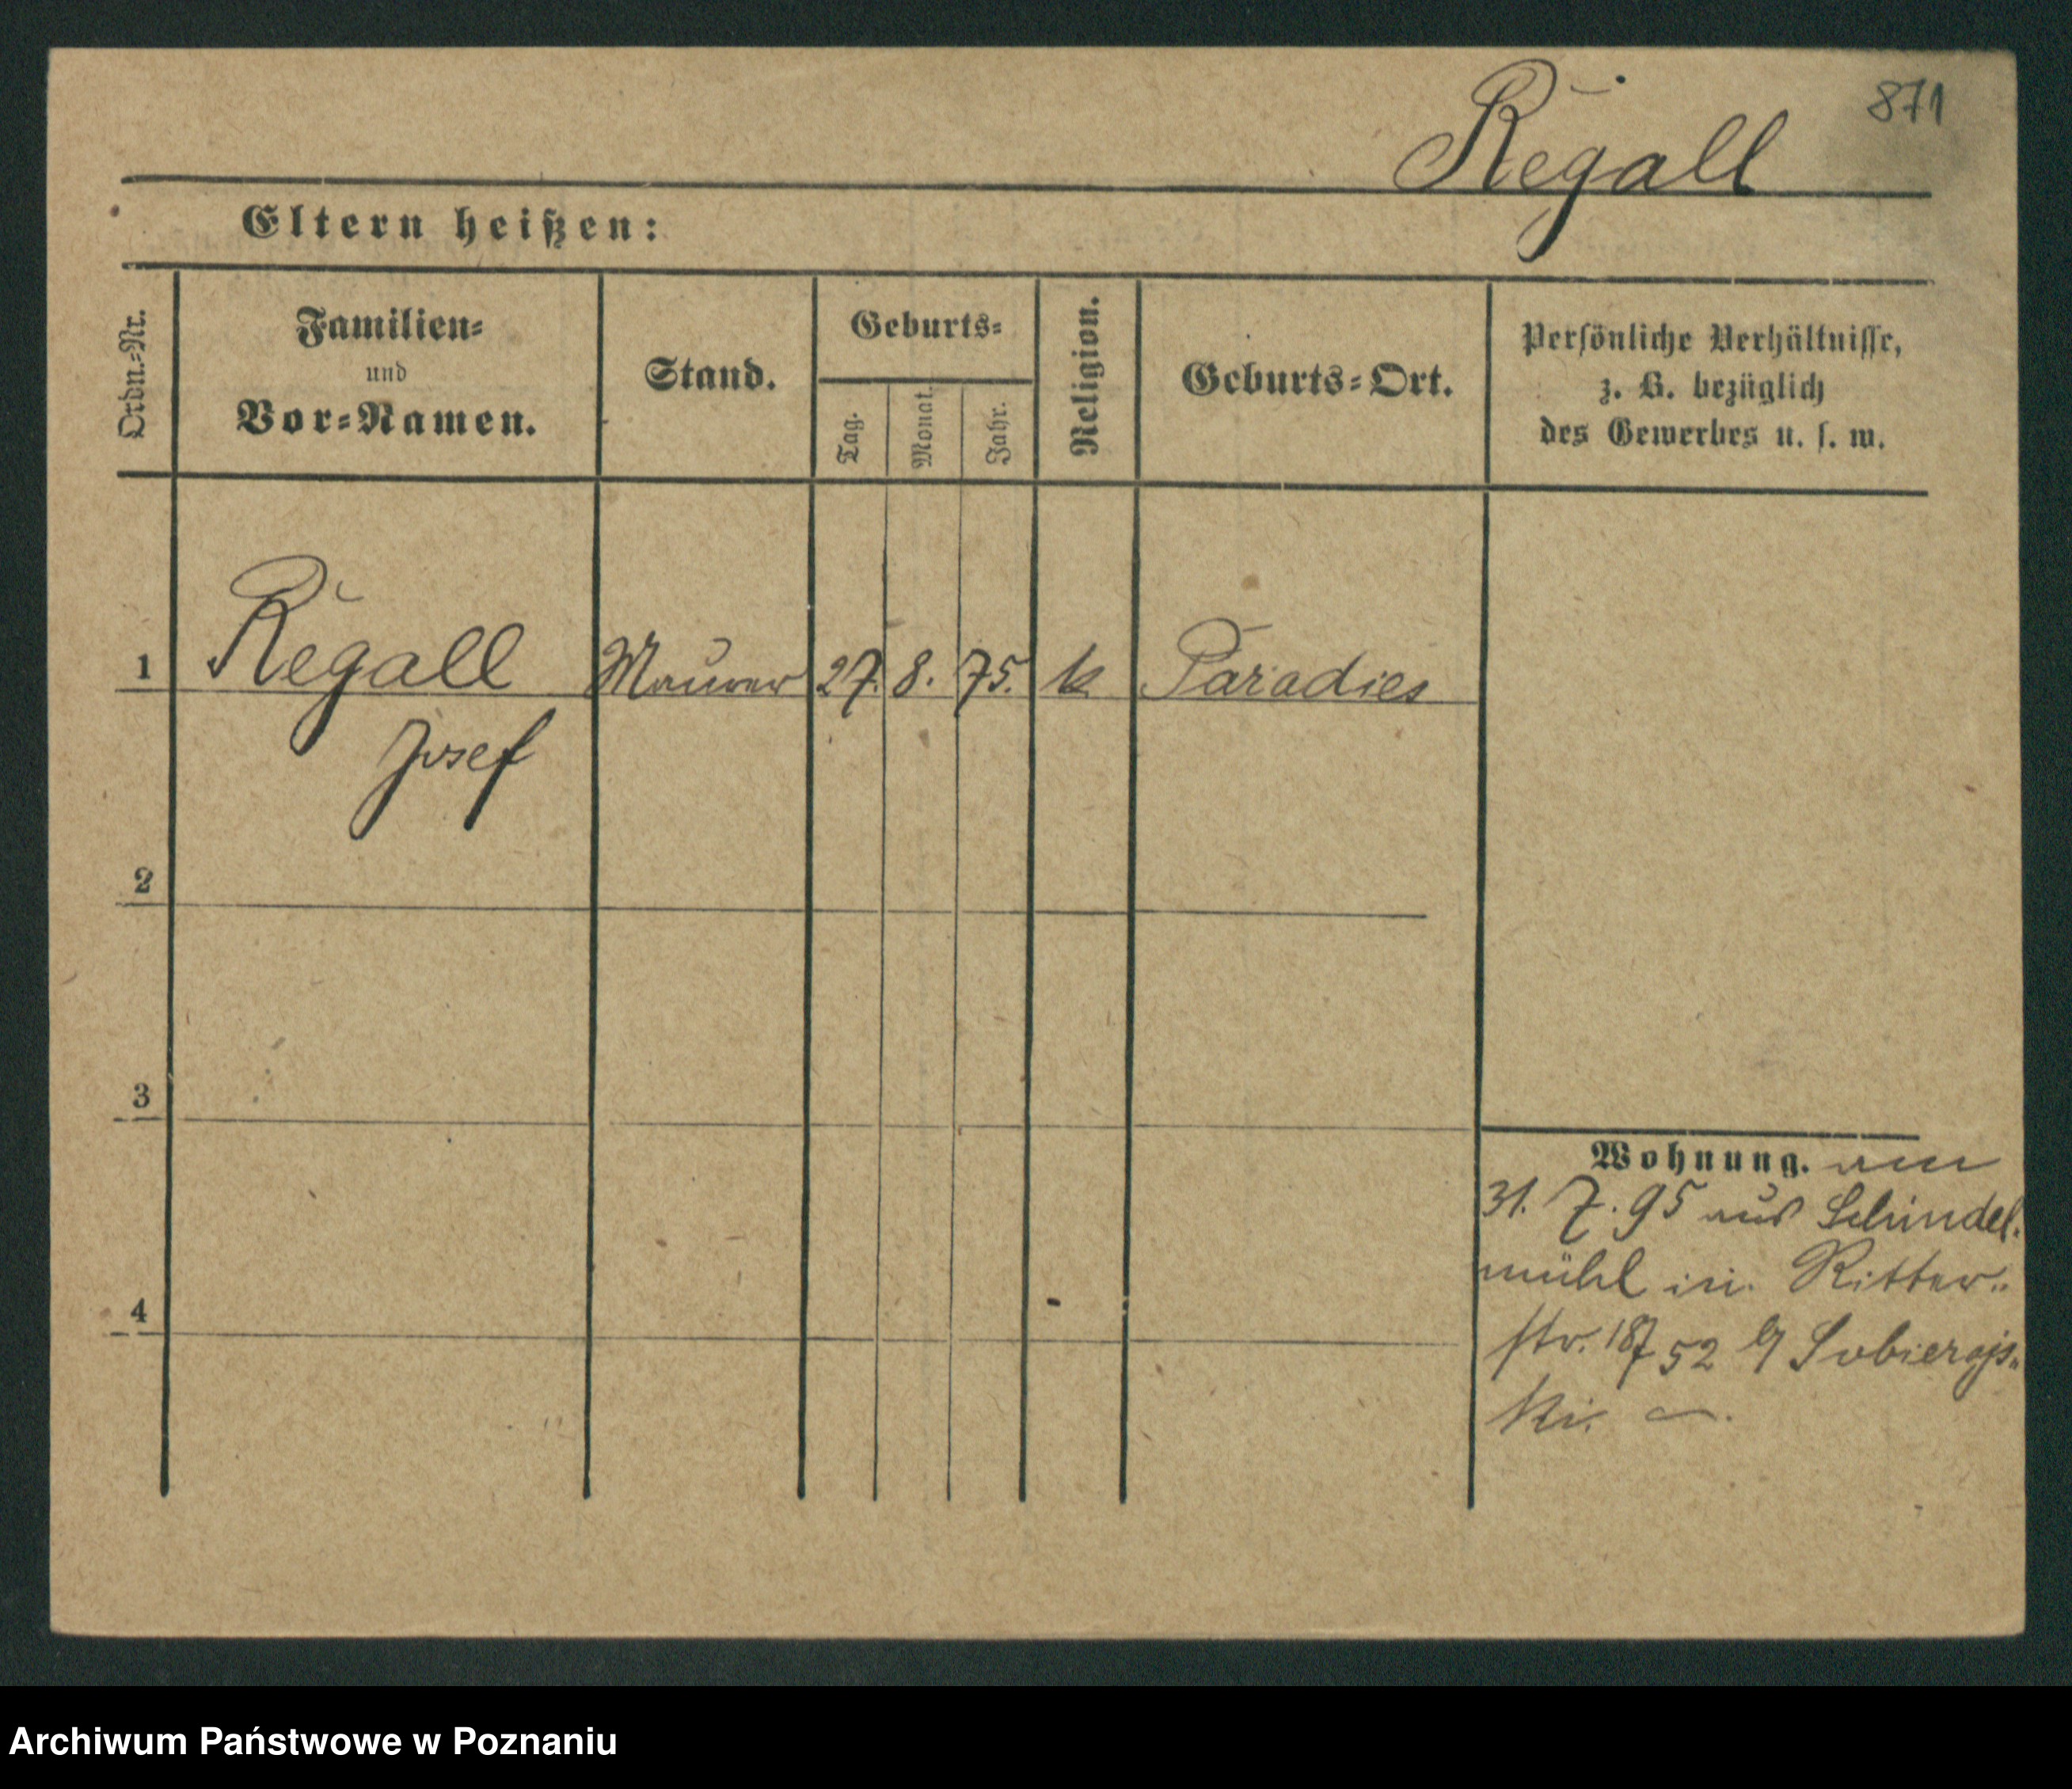 871
Regall
Eltern heißen:
Ordn.=Nr.
Familien=
und
Vor=Namen.
Stand.
Geburts=
Tag.
Monat.
Jahr.
Religion.
Geburts=Ort.
Persönliche Verhältnisse,
z. B. bezüglich
des Gewerbes u. s. w.
1 Regall Maurer 27. 8. 75. k Paradies
Josef
2
3
4
Wohnung.
31. 7. 95 aus Schindel.
mühl in Ritter..
str. 187 52 Sobierajs„
ki.
Archiwum Państwowe w Poznaniu